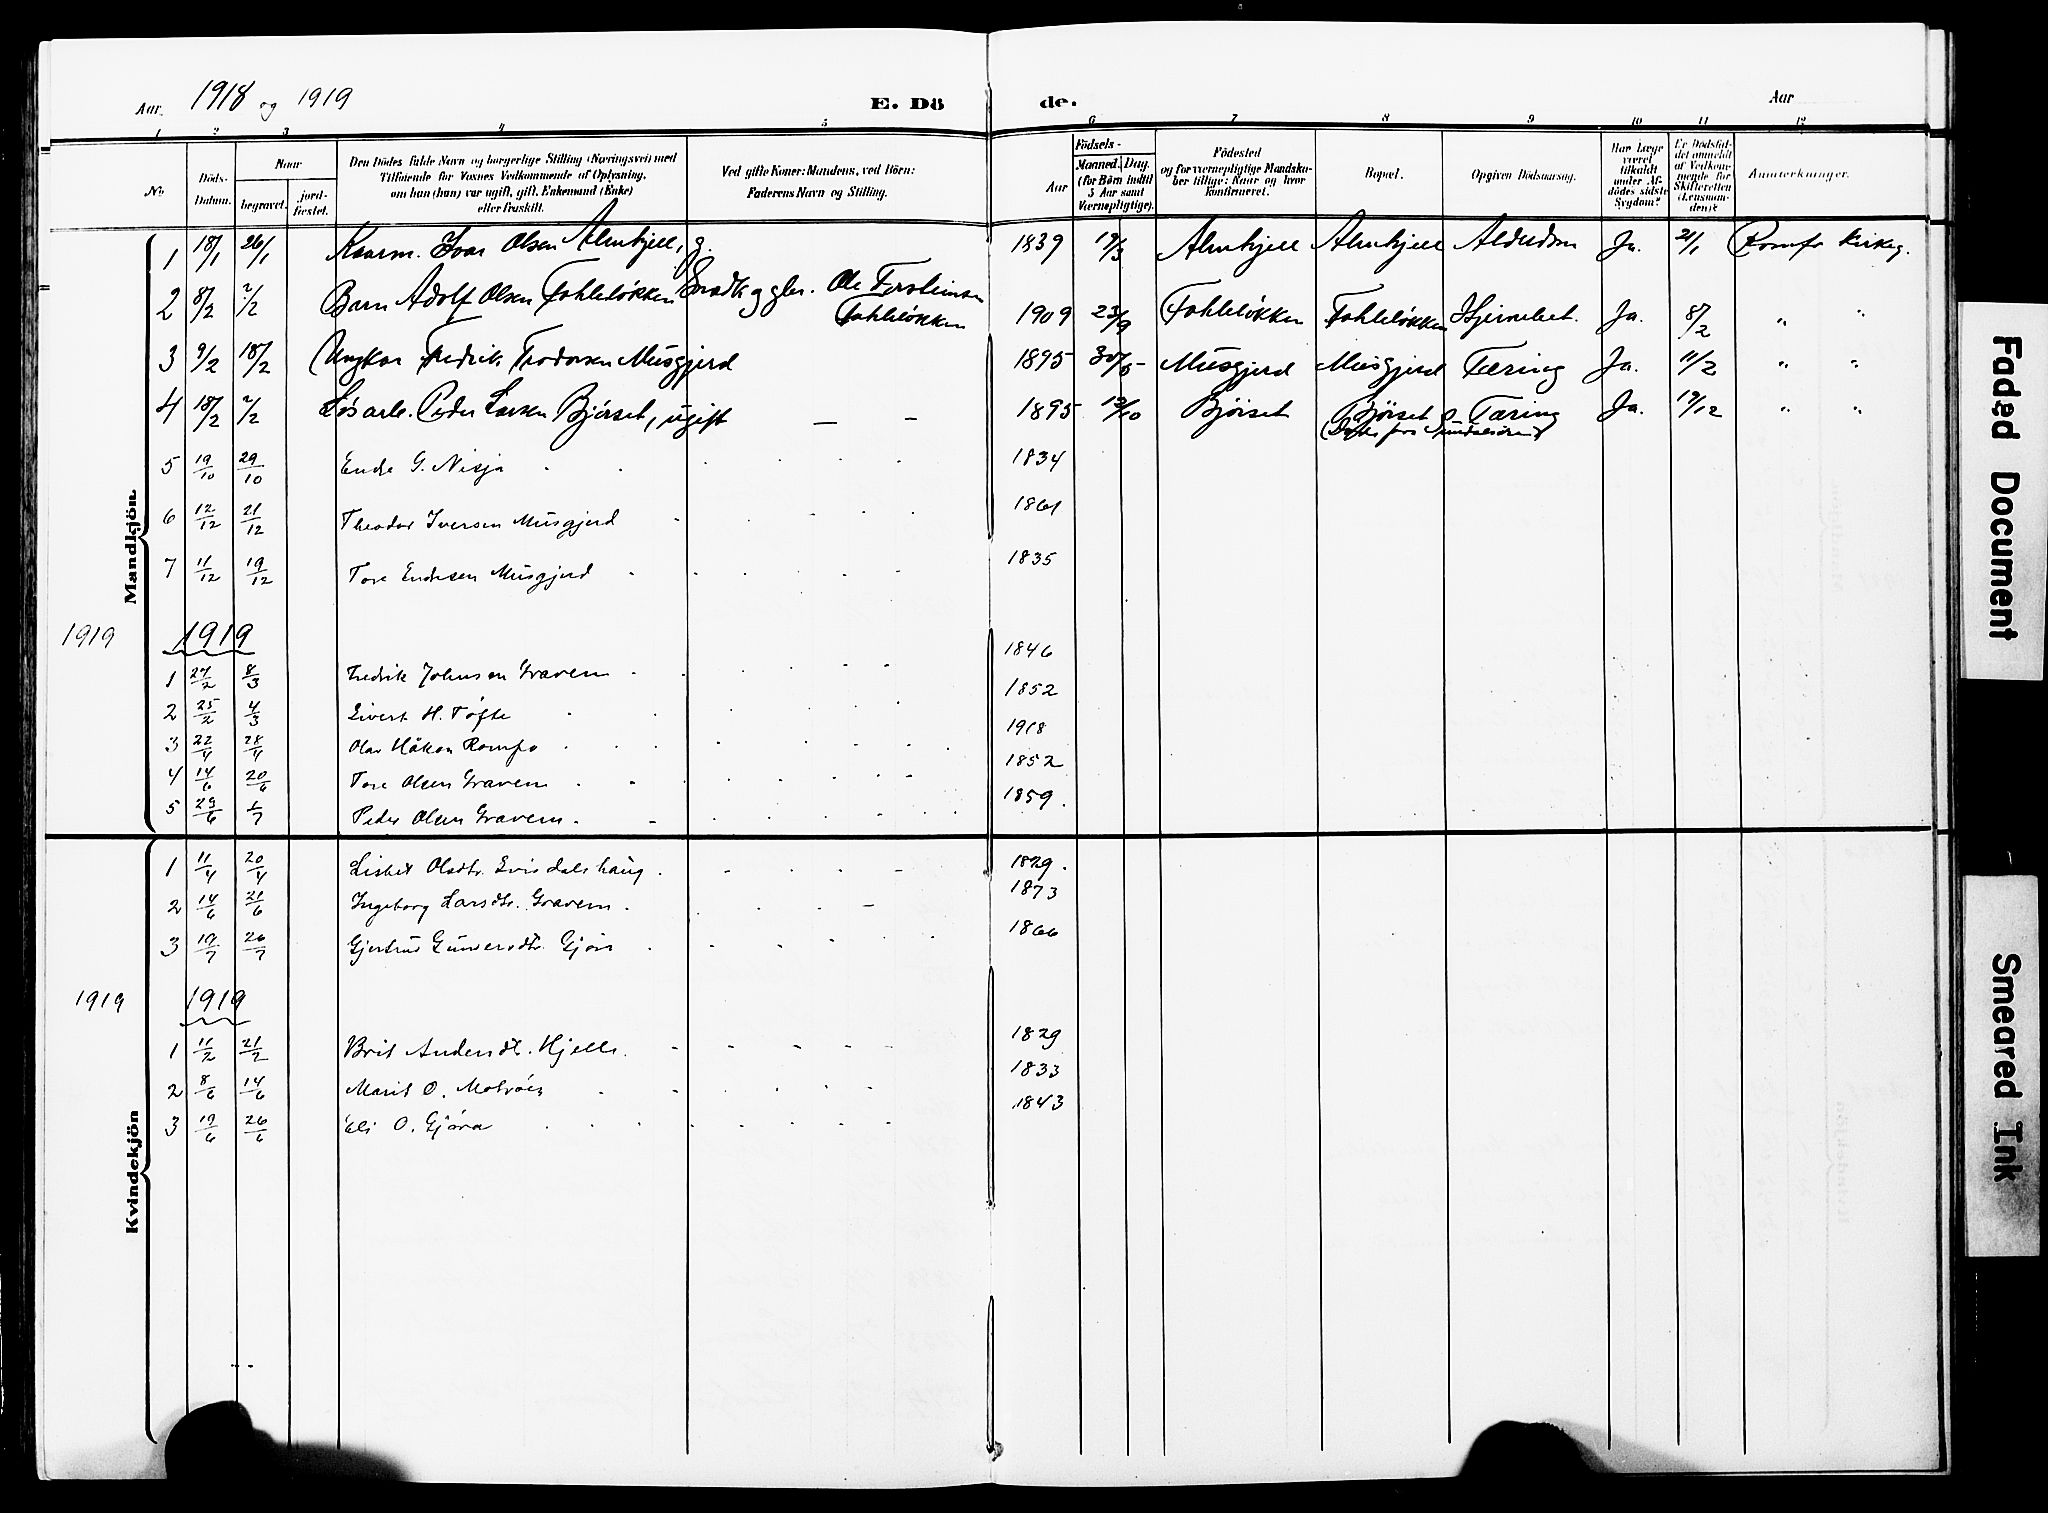 Aar 1918 og 1919 E. Dö de. Aar
1 2 3 4 5 6 7 8 9 10 11 12
No
Döds-Datum.
Naar
begravet. jord-fæstet.
Den Dödes fulde Navn og borgerlige Stilling (Næringsvei) med
Tilföiende for Voxnes Vedkommende af Oplysning,
om han (hun) var ugift, gift, Enkemand (Enke)
eller fraskilt.
Ved gifte Koner: Mandens, ved Börn:
Faderens Navn og Stilling.
Aar
Födsels-
Maaned. Dag.
(for Börn indtil
5 Aar samt
Værnepligtige).
Födested
og for værnepligtige Mandska-
ber tillige: Naar og hvor
konfirmeret.
Bopæl.
Opgiven Dödsaarsag.
Har Læge
været
tilkaldt
under Af-
dödes sidste
Sygdom?
Er Dödsfal-
det anmeldt
af Vedkom-
mende for
Skifteretten
(Lensman-
den)?
Anmærkninger.
Mandkjön
1 18/1 26/1 Kaarm. Ivar Olsen Almskjell, g. 1839 19/3 Almskjell Almskjell Alderdom Ja. 21/1 Romfo kirkeg.
2 8/2 Barn Adolf Olsen Fahleløkken Ole Torsteinsen
Fahleløkken 1909 23/9 Fahleløkken Fahleløkken Hjernebet. Ja. 8/2 " "
3 9/2 18/2 Ungkar Fredrik Musgjerd 1895 Musgjerd Musgjerd Tæring Ja. 11/2 " "
4 18/2 Løsarb. Peder Larsen Bjørset, ugift — — 1895 Bjørset Bjørset Tæring Ja. 19/12 " "
5 19/10 29/10 Endre G. Nisja 1834
6 12/12 21/12 Theodor Iversen Musgjerd 1861
7 11/12 19/12 Tore Endresen Musgjerd 1835
1919 1919
1 27/2 8/3 Fredrik Johnsen Gravem 1846
2 25/2 4/3 Sivert H. Tøfte 1852
3 22/4 28/4 Olav Håkon Romfo 1918
4 14/6 20/6 Tore Olsen Gravem 1852
5 29/6 Peder Olsen Gravem 1859.
Kvindekjön
1 11/4 20/4 Lisbet Olsdtr. 1829.
2 14/6 21/6 Ingeborg Larsdtr. Gravem. 1873
3 19/7 26/7 Gjertrud Gundersdtr. Gjøra 1866
1919 1919
1 11/2 21/2 Brit Andersdtr. Hjelle. 1829
2 8/6 14/6 Marit O. 1833
3 19/6 26/6 Eli O. Gjøra 1843
Faded Document
Smeared Ink